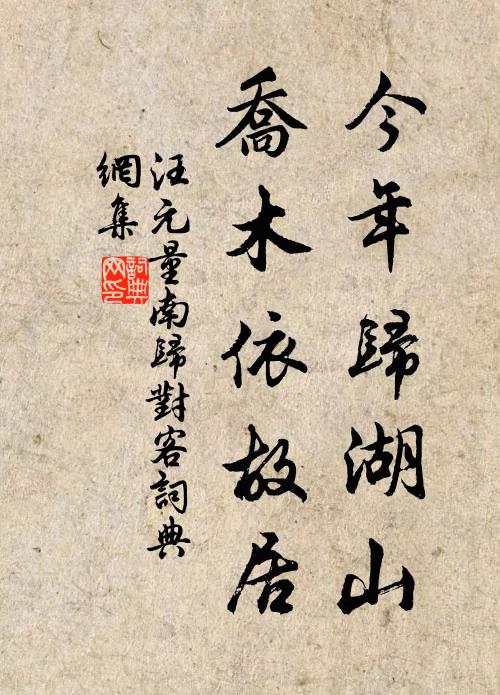 今年歸湖山
喬木依故居
汪元量南歸對客詞典
網集
詞典
网印